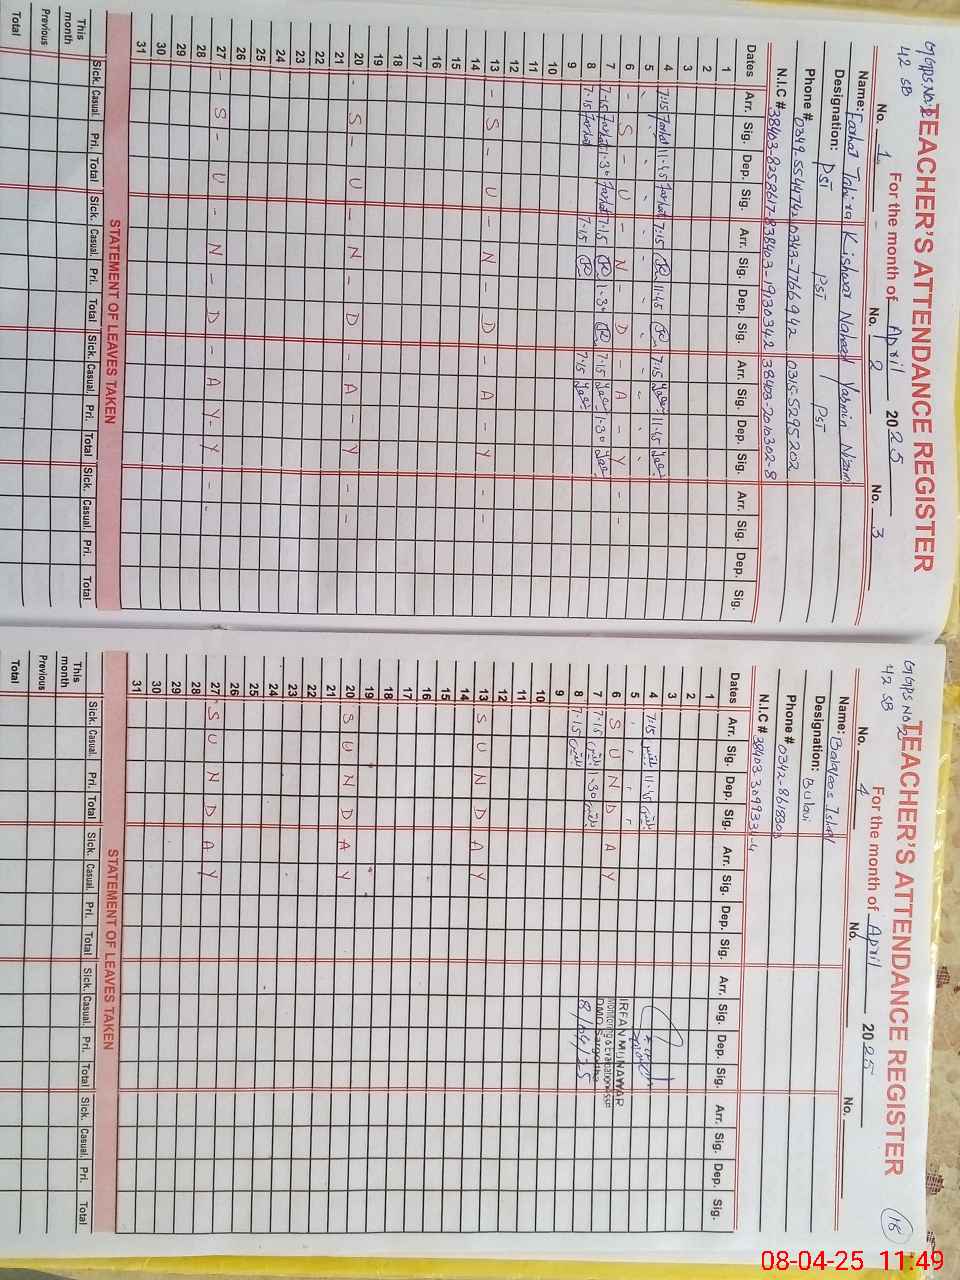 GGPS No. 2
42 SB
TEACHER'S ATTENDANCE REGISTER
For the month of April 2025
No. 1 No. 2 No. 3
Name: Farhat Tahira Kishwar Naheed Yasmin Nizami
Designation: PST PST PST
Phone # 0343-7766942 0315-5295202
N.I.C # 38403-2010302-8
Dates Arr. Sig. Dep. Sig. Arr. Sig. Dep. Sig. Arr. Sig. Dep. Sig. Arr. Sig. Dep. Sig.
1
2
3
4 7:15 Farhat 11:45 Farhat 7:15 11:45 7:15 11:45
5
6 - S - U - N - D - A - Y - -
7 7-15 Farhat 1-30 Farhat 7-15 1-30 7-15 1-30
8 7-15 Farhat 7-15 7-15
9
10
11
12
13 - S - U - N - D - A - Y - -
14
15
16
17
18
19
20 - S - U - N - D - A - Y - -
21
22
23
24
25
26
27 - S - U - N - D - A - Y - -
28
29
30
31
STATEMENT OF LEAVES TAKEN
Sick. Casual. Pri. Total Sick. Casual. Pri. Total Sick. Casual. Pri. Total Sick. Casual. Pri. Total
This month
Previous
Total
GGPS No 2
42 SB
TEACHER'S ATTENDANCE REGISTER
18
For the month of April 2025
No. 4 No. No.
Name:
Designation:
Phone # 0342-8618303
N.I.C # 38403-3099331-4
Dates Arr. Sig. Dep. Sig. Arr. Sig. Dep. Sig. Arr. Sig. Dep. Sig. Arr. Sig. Dep. Sig.
1
2
3
4 7:15 بلقیس 11:45 بلقیس
5
6 S U N D A Y
7 7-15 بلقیس 1-30 بلقیس
8 7-15 بلقیس
9
10
11
12
13 S U N D A Y
14
15
16
17
18
19
20 S U N D A Y
21
22
23
24
25
26
27 S U N D A Y
28
29
30
31
IRFAN MUNAWWAR
DMO Sargodha
8/04/25
STATEMENT OF LEAVES TAKEN
Sick. Casual. Pri. Total Sick. Casual. Pri. Total Sick. Casual. Pri. Total Sick. Casual. Pri. Total
This month
Previous
Total
08-04-25 11:49